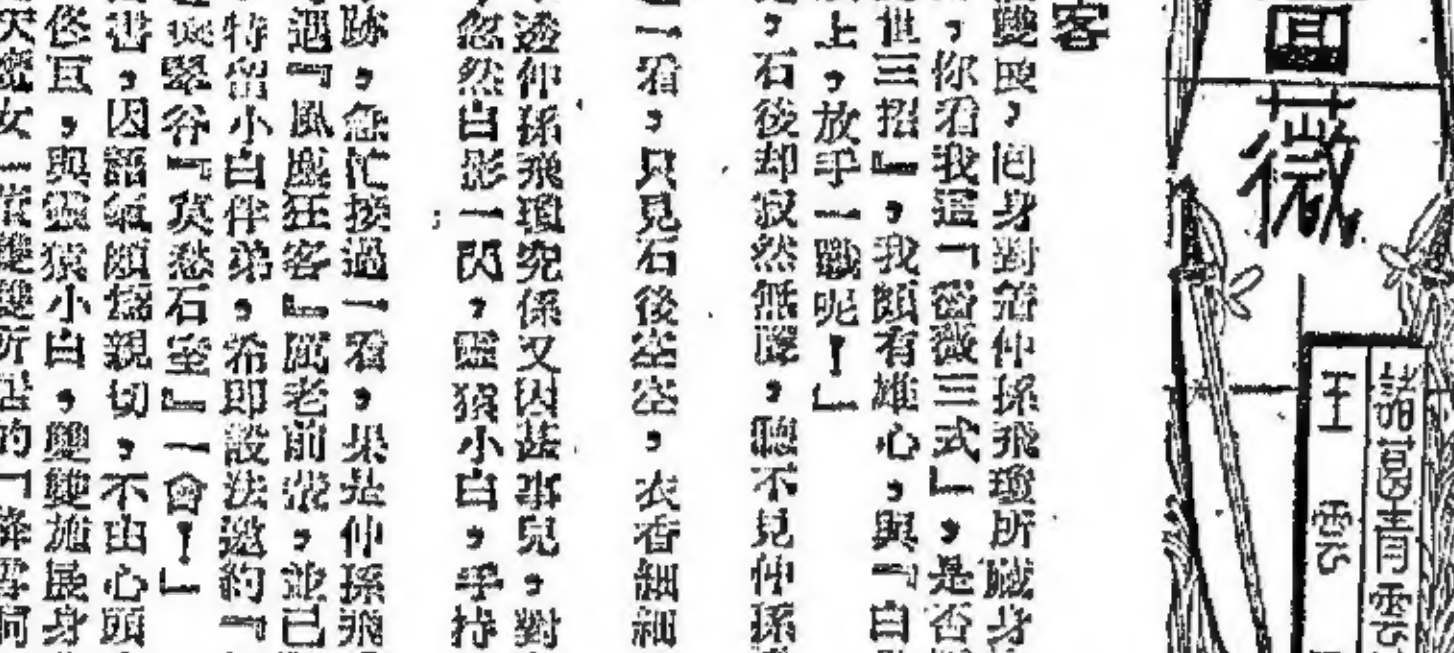 薔薇
諸葛青雲
王 雲
客
雙陂,回身對着仲孫飛瓊所藏身
,你看我這「薔薇三式」,是否
世三招』,我頗有雄心,與『白
上,放手一戰呢!」
,石後却寂然無聲,聽不見仲孫
一看,只見石後空空,衣香細細
透仲孫飛瓊究係又因甚事兒,對
忽然白影一閃,靈猿小白,手持
跡,急忙接過一看,果是仲孫飛
遇『風塵狂客』厲老前輩,並已
特留小白伴弟,希即設法邀約『
翠谷『莫愁石室』一會!」
書,因語氣頗爲親切,不由心頭
亙,與靈猿小白,雙雙施展身
天魔女一 雙雙所居的「降雪洞